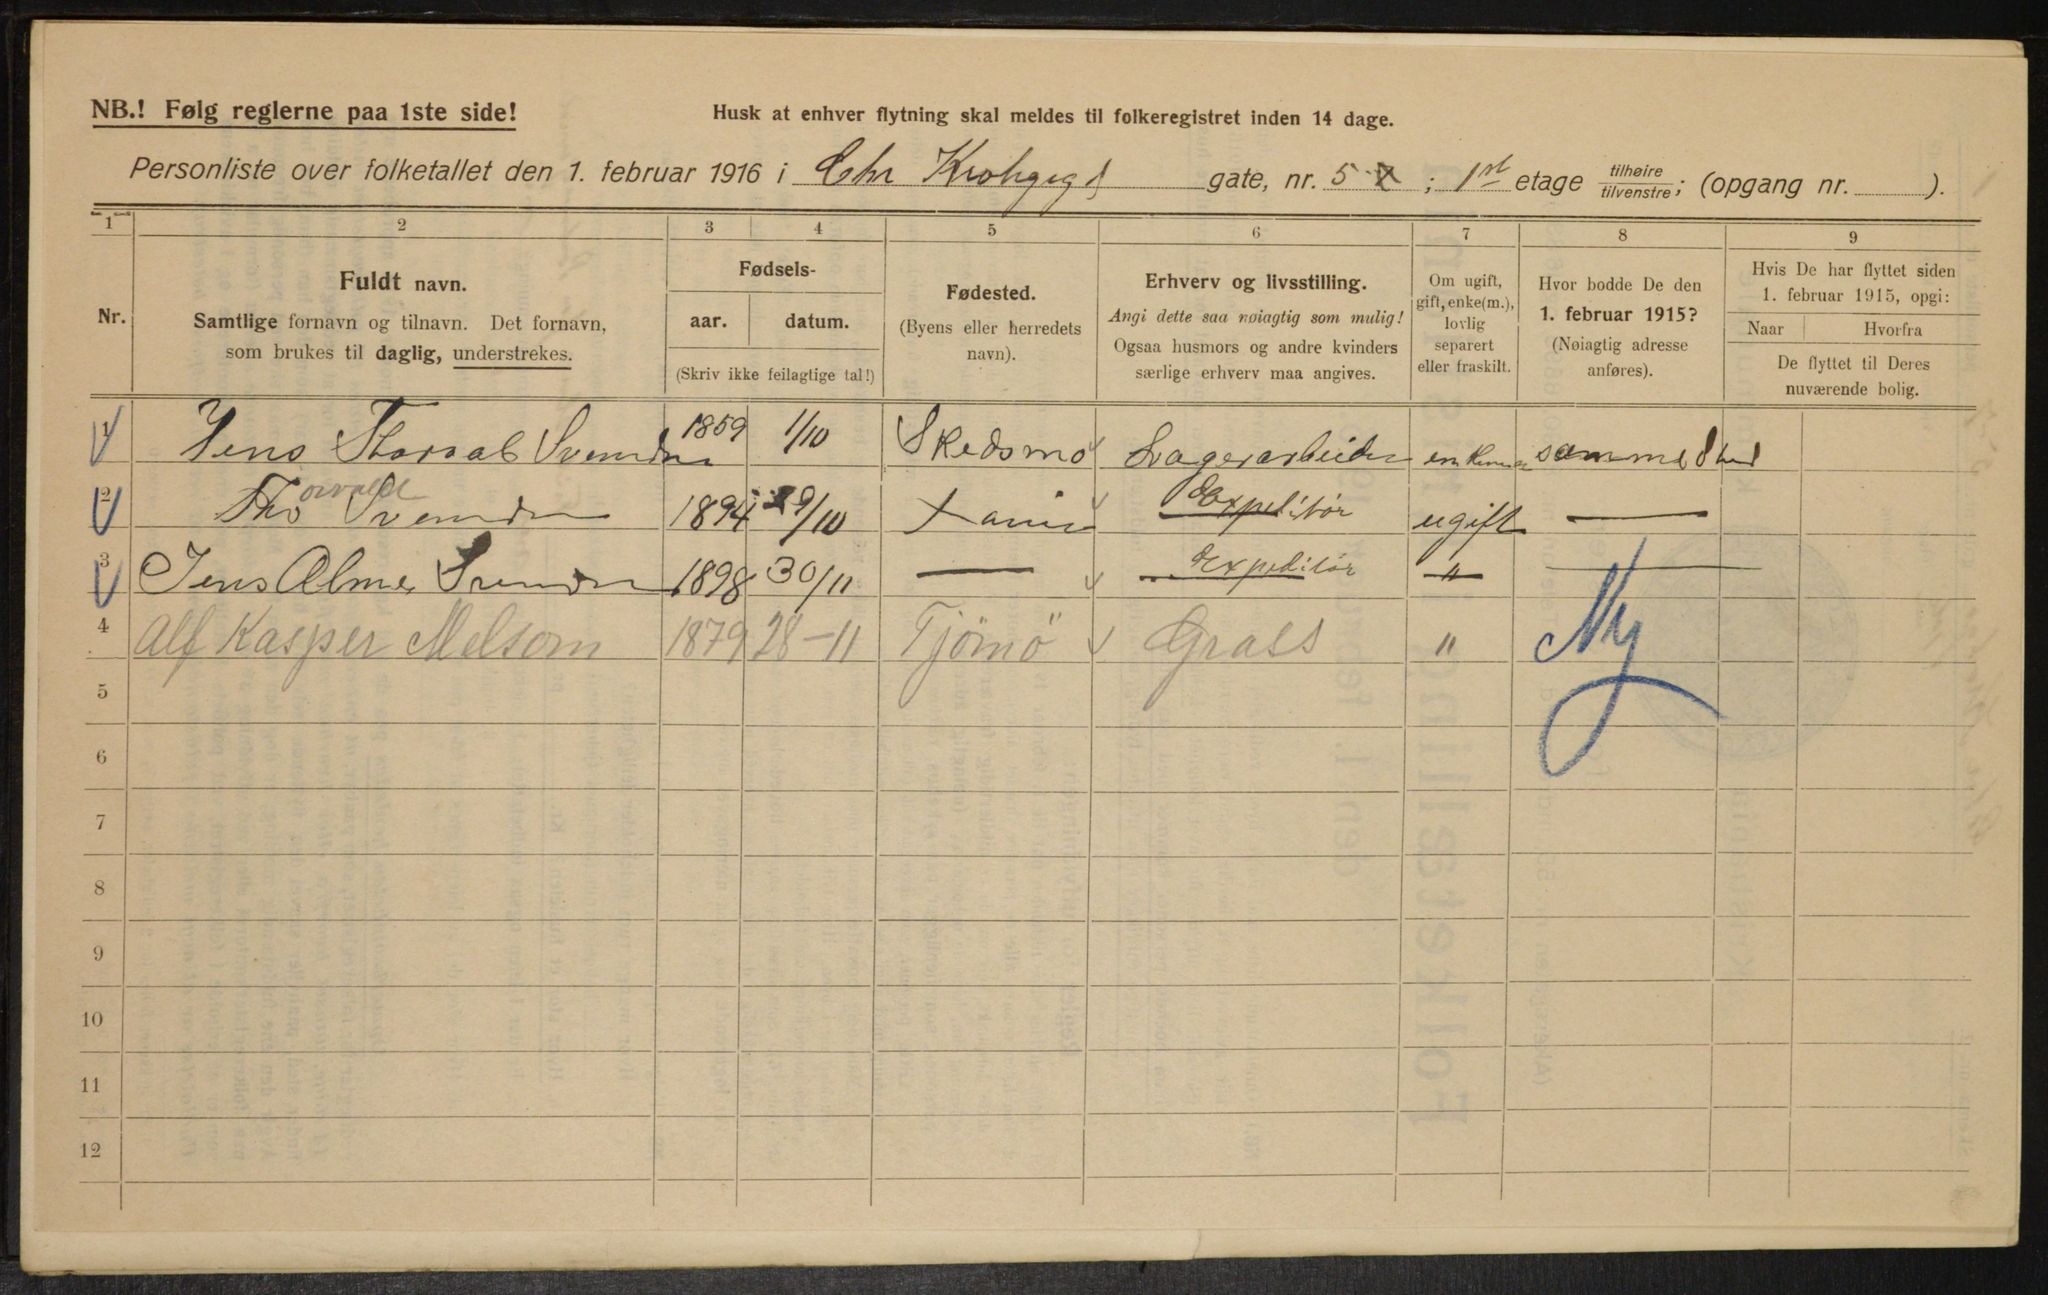 NB.! Følg reglerne paa 1ste side!
Husk at enhver flytning skal meldes til folkeregistret inden 14 dage.
Personliste over folketallet den 1. februar 1916 i Chr Krohgsgd gate, nr. 5 ; 1st etage tilhøire tilvenstre; (opgang nr. ).
1 2 3 4 5 6 7 8 9
Nr.
Fuldt navn.
Samtlige fornavn og tilnavn. Det fornavn,
som brukes til daglig, understrekes.
Fødsels-
aar. datum.
(Skriv ikke feilagtige tal!)
Fødested.
(Byens eller herredets
navn).
Erhverv og livsstilling.
Angi dette saa nøiagtig som mulig!
Ogsaa husmors og andre kvinders
særlige erhverv maa angives.
Om ugift,
gift, enke(m.),
lovlig
separert
eller fraskilt.
Hvor bodde De den
1. februar 1915?
(Nøiagtig adresse
anføres).
Hvis De har flyttet siden
1. februar 1915, opgi:
Naar Hvorfra
De flyttet til Deres
nuværende bolig.
1 Jens Svendsen 1859 1/10 Skedsmo Lagerarbeider samme Sted
2 Thorvald Svendsen 1894 29/10 Xania Expeditør ugift —
3 Jens Svendsen 1898 30/11 — Expeditør " —
4 Alf Kasper Melsom 1879 28-11 Tjömö Grass " Ny
5
6
7
8
9
10
11
12